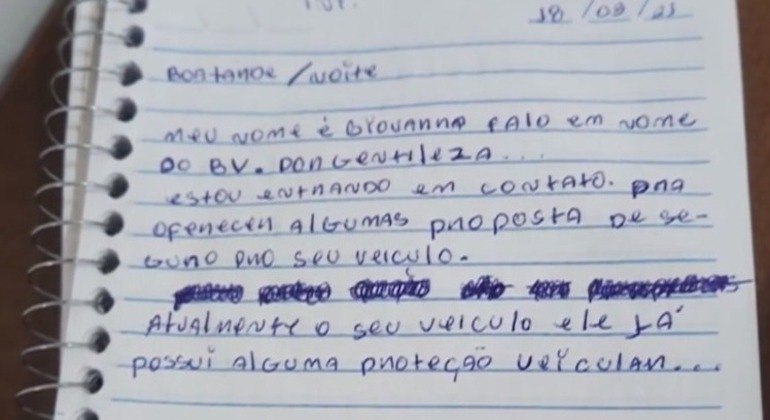 BOATARDE/NOITE
MEU NOME É GIOVANNA FALO em NOME
DO BV. POR GENTILEZA...
ESTOU ENTRANDO em CONTATO. PRA
OFERECER ALGUMAS PROPOSTA DE SE-
GURO PRO SEU VEICULO.
ATUALMENTE O SEU VEICULO ELE JÁ
POSSUI ALGUMA PROTEÇÃO VEICULAR...